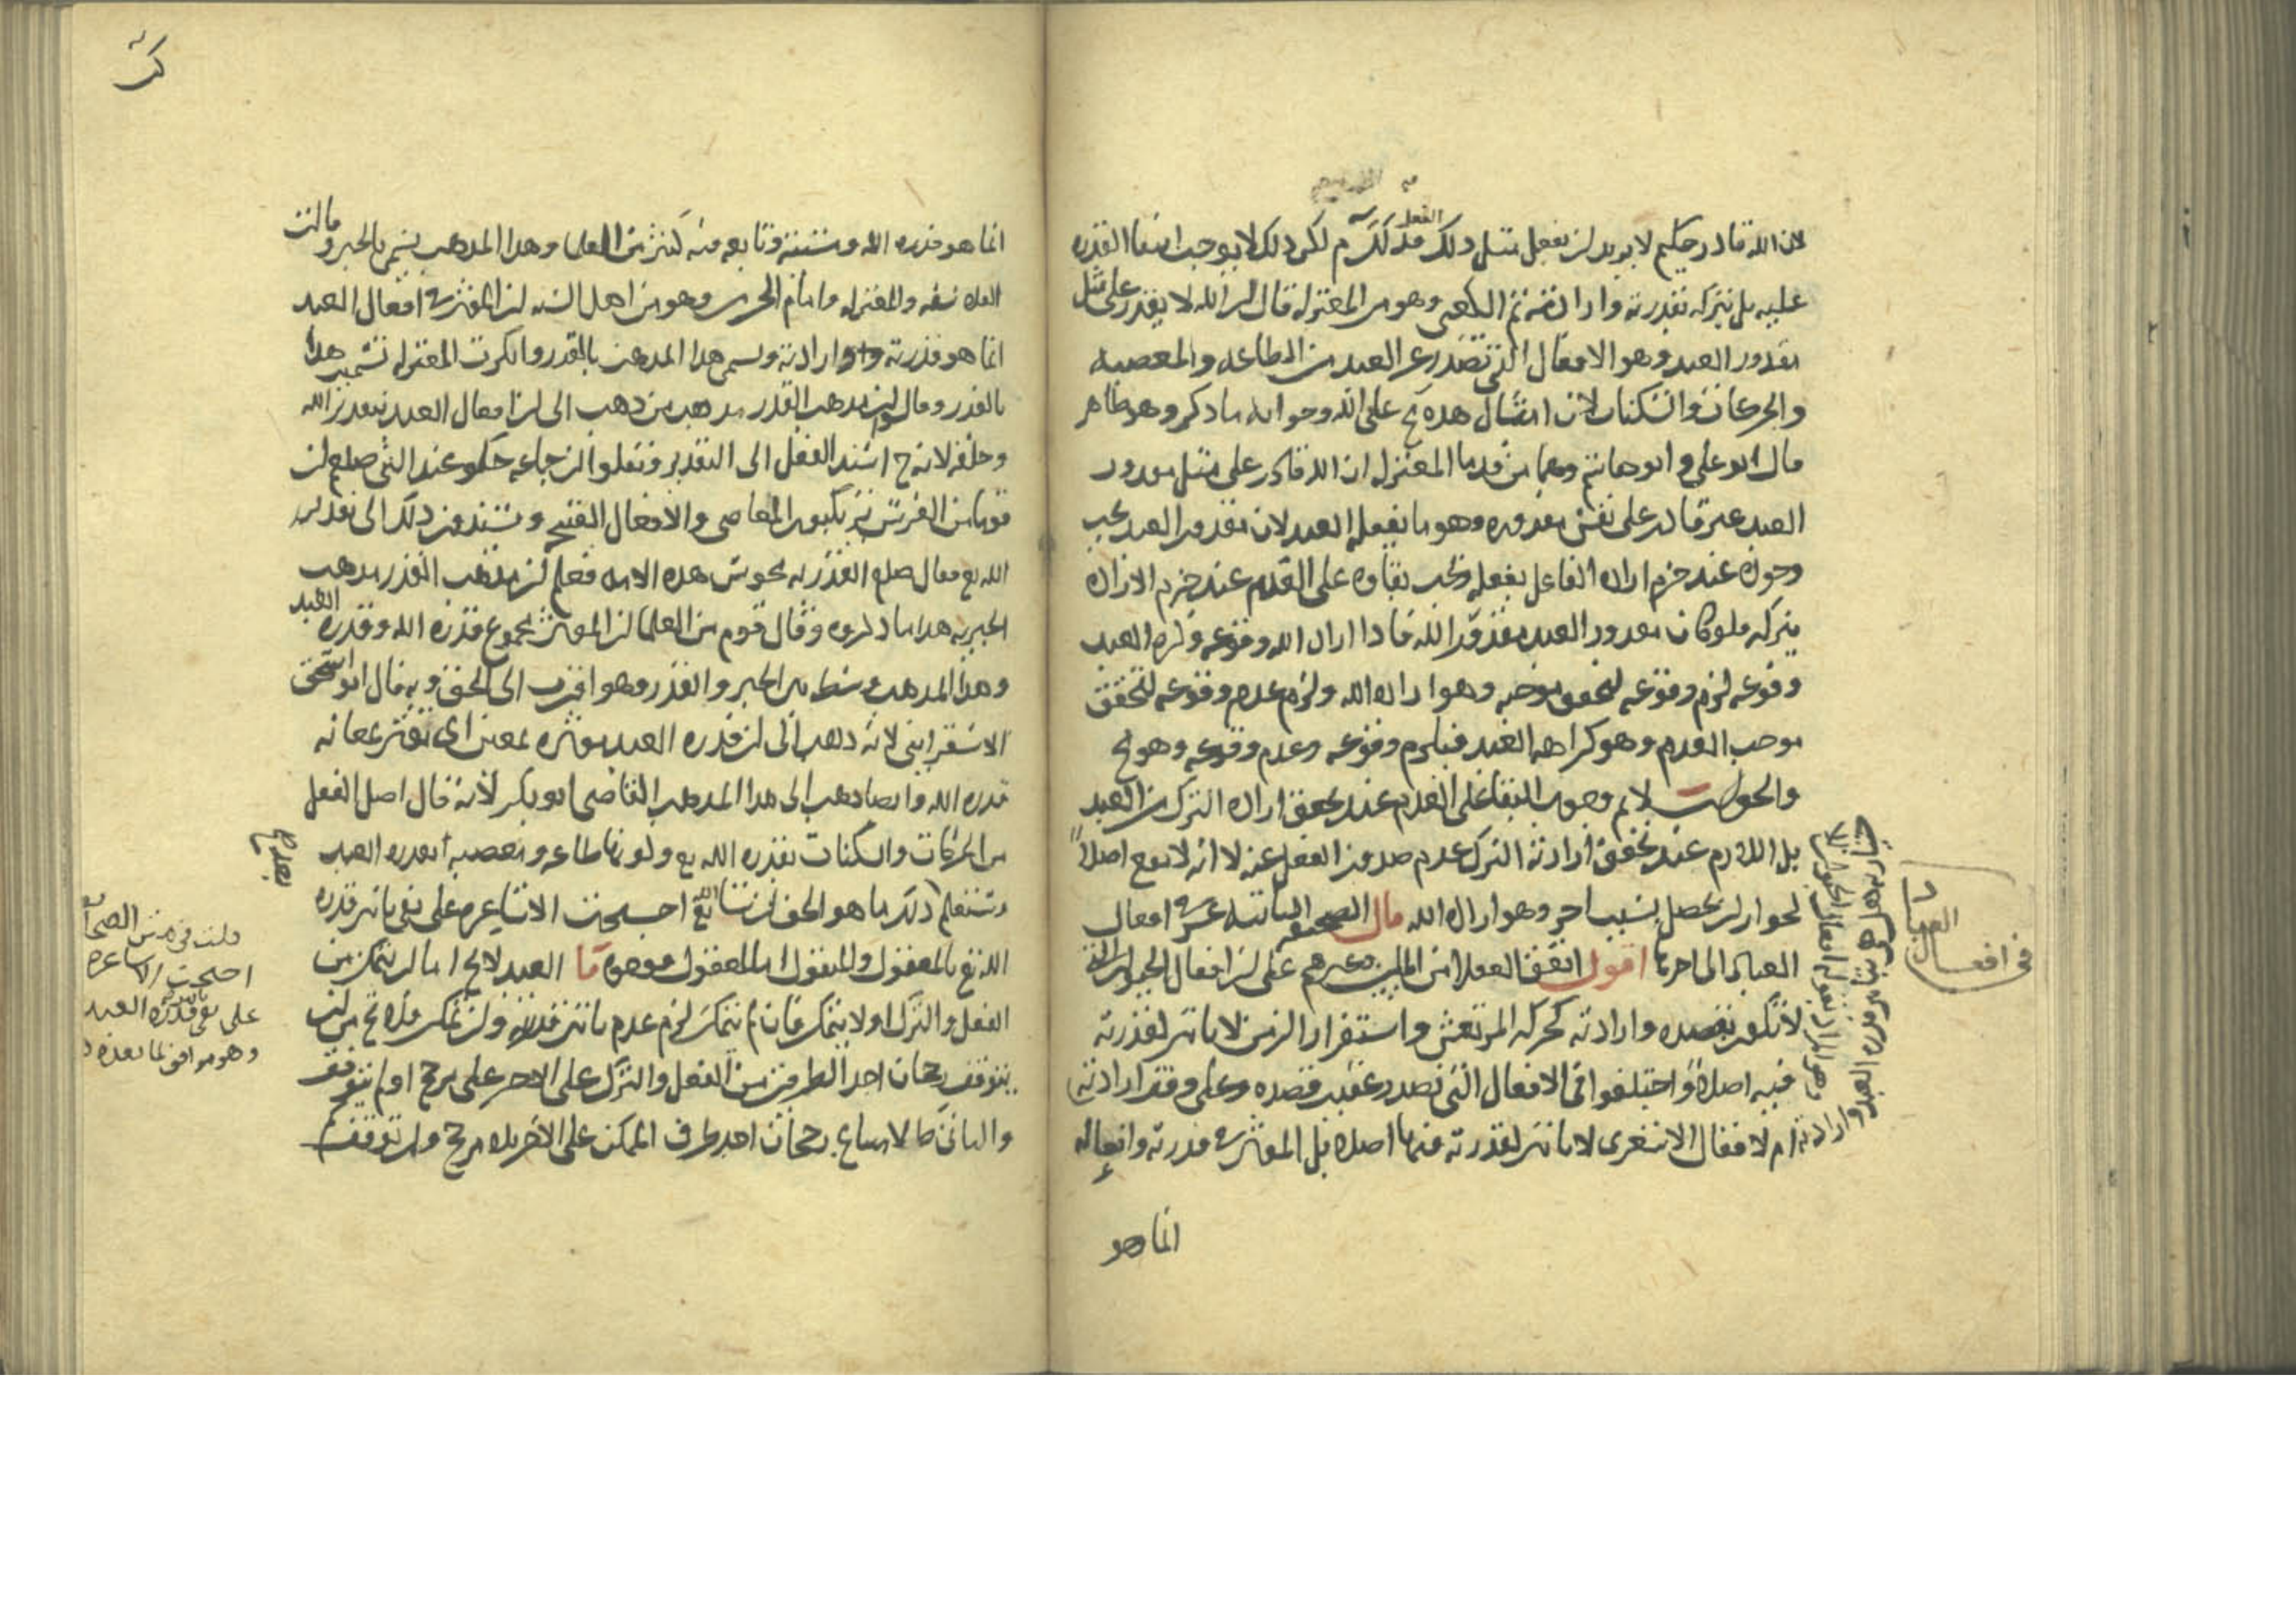 لان الله قادر حكيم لا يريد لن يفعل مثل ذلك لكن ذلك لا يوجب انتفا القدره
عليه بل يتركه بقدرته وارادته ثم الكعبي وهو من المعتزله قال لن الله لا يقدر على مثل
مقدور العبد وهو الافعال التى تصدر عن العبد من الطاعه والمعصيه
والحركات والسكنات لان امثال هذه مح على الله وجوابه ما ذكر وهو ظاهر
قال ابو على وابو هاشم وهما من قدما المعتزله ان الله قادر على مثل مقدور
العبد غير قادر على نفس مقدوره وهو ما يفعله العبد لان مقدور العبد يجب
وجوده عند جزم اراده الفاعل بفعله ويجب بقاوه على العدم عند جزم الاراده
بتركه فلو كان مقدور العبد مقدور الله فاذا اراد الله وقوعه وكره العبد
وقوعه لزم وقوعه لتحقق موجبه وهو اراده الله ولزم عدم وقوعه لتحقق
موجب العدم وهو كراهه العبد فيلزم وقوعه وعدم وقوعه وهو مح
والجواب لانم وجوب البقا على العدم عند تحقق اراده الترك من العبد
بل اللازم عند تحقق ارادته الترك عدم صدور الفعل عنه لا انه لا يقع اصلا
لجواز لن يحصل بسبب اخر وهو اراده الله قال الصحيفه الثانيه عشر فى افعال
العباد الى اخرها اقول اتفق العقلا من المليين وغيرهم على لن افعال الحيوان التى
لا تكون بقصده وارادته كحركه المرتعش واستقرار الزمن لا تاثير لقدرته
فيه اصلا واختلفوا فى الافعال التى تصدر عقيب قصده وعلى وفق ارادته
ام لا فقال الاشعرى لا تاثير لقدرته فيها اصلا بل الموثر فى قدرته وافعاله
انما هو
فى افعال
العباد
انما هو قدره الله ومشيئته وتابعه فيه كثير من العلما وهذا المذهب يسمى بالجبر وقالت
الفلاسفه والمعتزله وامام الحرمين وهو من اهل السنه لن الموثر فى افعال العبد
انما هو قدرته وارادته ويسمى هذا المذهب بالقدر وانكرت المعتزله تسميه هذا
بالقدر وقالوا لن مذهب القدر مذهب من ذهب الى لن افعال العبد بتقدير الله
وخلقه لانه ح اسند الفعل الى التقدير ونقلوا لن جماعه حكوا عند النبى صلعم لن
قوما من الفرس يرتكبون المعاصى والافعال القبيحه ويسندون ذلك الى تقدير
الله تع فقال صلعم القدريه مجوس هذه الامه فعلم لن مذهب القدر مذهب
الجبريه هذا ما ذكروه وقال قوم من العلما لن الموثر مجموع قدره الله وقدره العبد
وهذا المذهب وسط بين الجبر والقدر وهو اقرب الى الحق وبه قال ابو اسحق
الاسفراينى لانه ذهب الى لن قدره العبد موثره بمعين اى توثر بمعاونه
قدره الله وايضا ذهب الى هذا المذهب القاضى ابو بكر لانه قال اصل الفعل
من الحركات والسكنات بقدره الله تع وكونها طاعه ومعصيه بقدره العبد
وستعلم ذلك ما هو الحق لن شا الله تع احتجت الاشاعره على نفى تاثير قدره
الله تع بالمعقول والمنقول اما المعقول فوجوه ما العبد لا يخ اما لن يتمكن من
الفعل والترك او لا يتمكن فان لم يتمكن لزم عدم تاثير قدرته ولن تمكن فلا يخ من لن
يتوقف رجحان احد الطرفين من الفعل والترك على الاخر على مرجح او لم يتوقف
والثانى مح لامتناع رجحان احد طرفى الممكن على الاخر بلا مرجح ولن توقف
قلت فى متن الصحايف
احتجت الاشاعره
على نفى قدره العبد
وهو موافق لما بعده